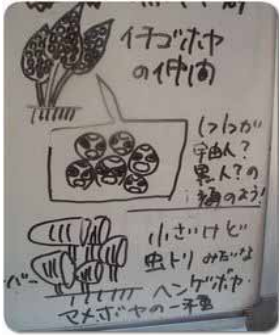 イチゴボヤ
の仲間
1つ1つが
宇宙人?
異人?の
顔のよう!
小さいけど
虫トリみたいな
ヘンゲボヤ
マメボヤの一種